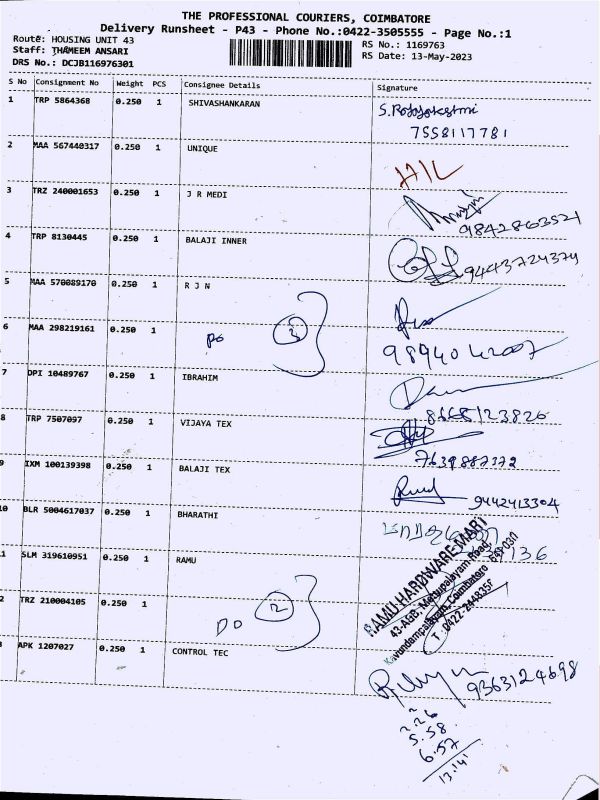 THE PROFESSIONAL COURIERS, COIMBATORE
Delivery Runsheet - P43 - Phone No.:0422-3505555 - Page No.:1
Route: HOUSING UNIT 43
RS No.: 1169763
Staff: THAMEEM ANSARI
RS Date: 13-May-2023
DRS No.: DCJB116976301
S No Consignment No Weight PCS Consignee Details Signature
1 TRP 5864368 0.250 1 SHIVASHANKARAN
7558117781
2 MAA 567440317 0.250 1 UNIQUE
3 TRZ 240001653 0.250 1 J R MEDI
9842863521
4 TRP 8130445 0.250 1 BALAJI INNER
9443724374
5 MAA 570089170 0.250 1 R J N
6 MAA 298219161 0.250 1
7 DPI 10489767 0.250 1 IBRAHIM
8668123826
8 TRP 7507097 0.250 1 VIJAYA TEX
7639887372
9 IXM 100139398 0.250 1 BALAJI TEX
9442413304
10 BLR 5004617037 0.250 1 BHARATHI
1 SLM 319610951 0.250 1 RAMU
RAMU HARDWARE MART
43-A&B, Mettupalayam Road,
Kavundampalayam, Coimbatore - 641 030
2 TRZ 210004105 0.250 1
DO 2
APK 1207027 0.250 1 CONTROL TEC
9363124698
2.26
5.58
6.57